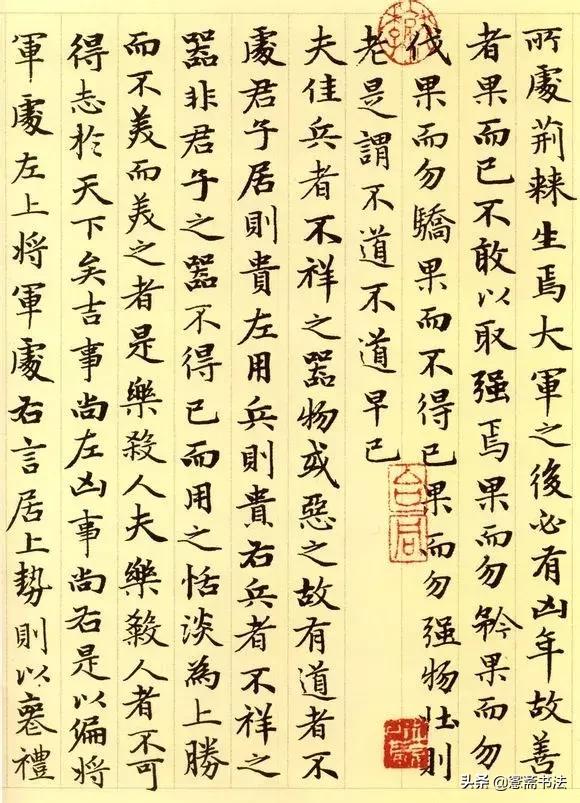 所處荊棘生焉大軍之後必有凶年故善
者果而已不敢以取强焉果而勿矜果而勿
伐果而勿驕果而不得已果而勿强物壯則
老是謂不道不道早已
夫佳兵者不祥之器物或惡之故有道者不
處君子居則貴左用兵則貴右兵者不祥之
器非君子之器不得已而用之恬淡為上勝
而不美而美之者是樂殺人夫樂殺人者不可
得志於天下矣吉事尚左凶事尚右是以偏將
軍處左上將軍處右言居上勢則以喪禮
头条@憲斋书法